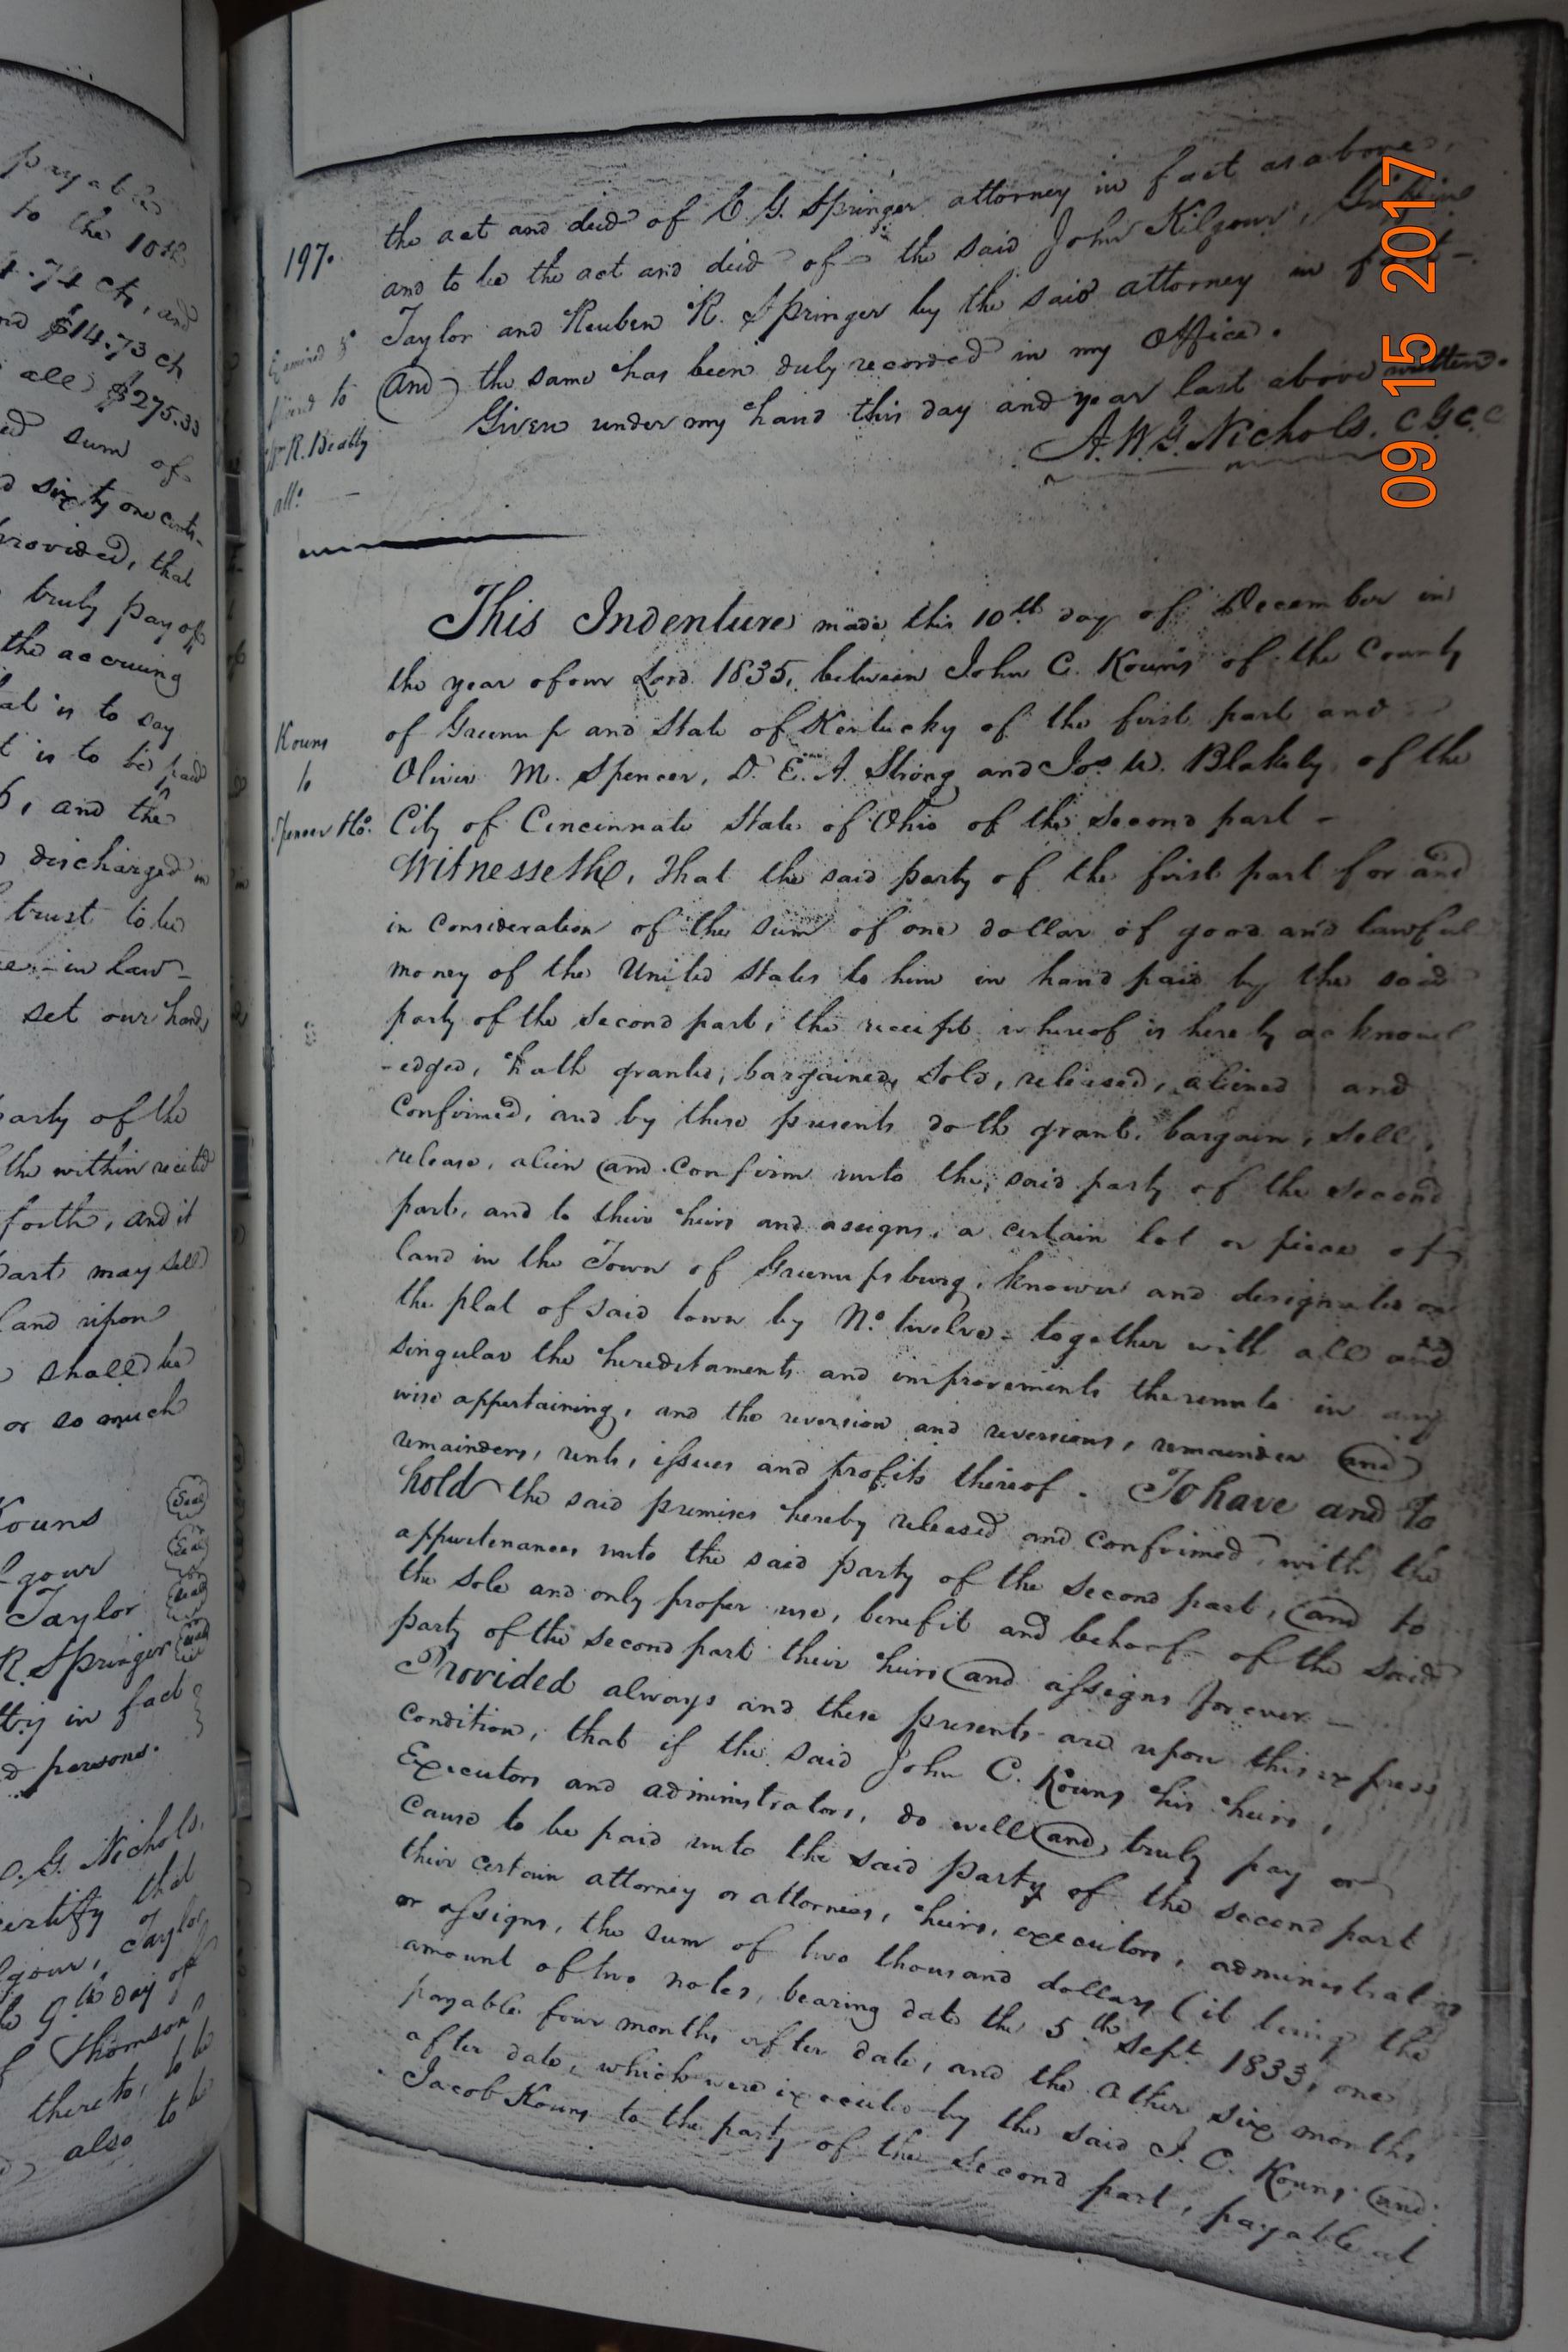 payable
to the 10th
4.74 cts, and
and $14.73 cts
all $275.33
sum of
sixty one cents
provided, that
truly pay off
the accruing
that is to say
it is to be paid
, and the
discharged in
trust to be
in law
set our hands
party of the
the within recited
forth, and it
part may sell
land upon
shall be
or so much
Kouns Seal
Kilgour Seal
Taylor Seal
R. Springer Seal
atty in fact
persons.
G. Nichols,
certify that
Kilgour, Taylor
to 9th day of
Thomson
thereto, to be
also to be
197.
the act and deed of C G. Springer attorney in fact as above,
and to be the act and deed of the said John Kilgour, Griffin
Taylor and Reuben R. Springer by the said attorney in fact -
Examined &
to
Wm R. Beatty
(and) the same has been duly recorded in my Office.
Given under my hand this day and year last above written.
A. W. G. Nichols. C G C C
This Indenture made this 10th day of December in
the year of our Lord 1835, between John C. Kouns of the County
of Greenup and State of Kentucky of the first part and
Oliver M. Spencer, D. E. A. Strong and Jos. W. Blakely of the
Kouns
to
Spencer &c.
City of Cincinnati State of Ohio of the second part -
Witnesseth, that the said party of the first part for and
in consideration of the sum of one dollar of good and lawful
money of the United States to him in hand paid by the said
party of the second part, the receipt whereof is hereby acknowl
-edged, hath granted, bargained, sold, released, aliened and
confirmed, and by these presents doth grant, bargain, sell,
release, alien and confirm unto the said party of the second
part, and to their heirs and assigns, a certain lot or piece of
land in the Town of Greenupsburg, known and designated on
the plat of said town by No. twelve - together with all and
singular the hereditaments and improvements thereunto in any
wise appertaining, and the reversion and reversions, remainder and
remainders, rents, issues and profits thereof. To have and to
hold the said premises hereby released and confirmed with the
appurtenances unto the said party of the second part, and to
the sole and only proper use, benefit and behoof of the said
party of the second part their heirs and assigns forever -
Provided always and these presents are upon this express
condition, that if the said John C. Kouns his heirs,
Executors and administrators, do well and truly pay or
cause to be paid unto the said party of the second part
their certain attorney or attornies, heirs, executors, administrators
or assigns, the sum of two thousand dollars (it being the
amount of two notes, bearing date the 5th Sept. 1833, one
payable four months after date, and the other six months
after date, which were executed by the said J. C. Kouns and
Jacob Kouns to the party of the second part, payable at
09 15 2017